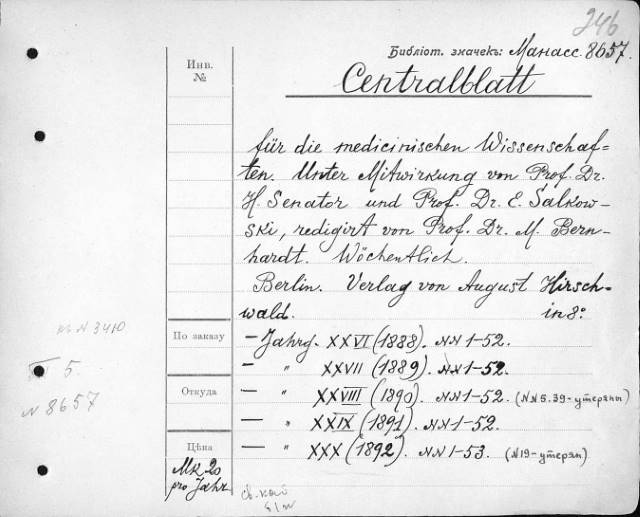 246
Библіот. значекъ: Манасс. 8657.
Инв.
№
Centralblatt
für die medicinischen Wissenschaf=
ten. Unter Mitwirkung von Prof. Dr.
H. Senator und Prof. Dr. E. Salkow-
ski, redigirt von Prof. Dr. M. Bern-
hardt. Wöchentlich.
Berlin. Verlag von August Hirsch-
wald. in 8º
къ N 3410
По заказу
– Jahrg. XXVI (1888). NN 1-52.
– " XXVII (1889). NN 1-52.
5.
Откуда
– " XXVIII (1890). NN 1-52. (NN 5.39-утеряны)
N 8657
– " XXIX (1891). NN 1-52.
Цѣна
– " XXX (1892). NN 1-53. (N19-утерян)
Mk 20
pro Jahr